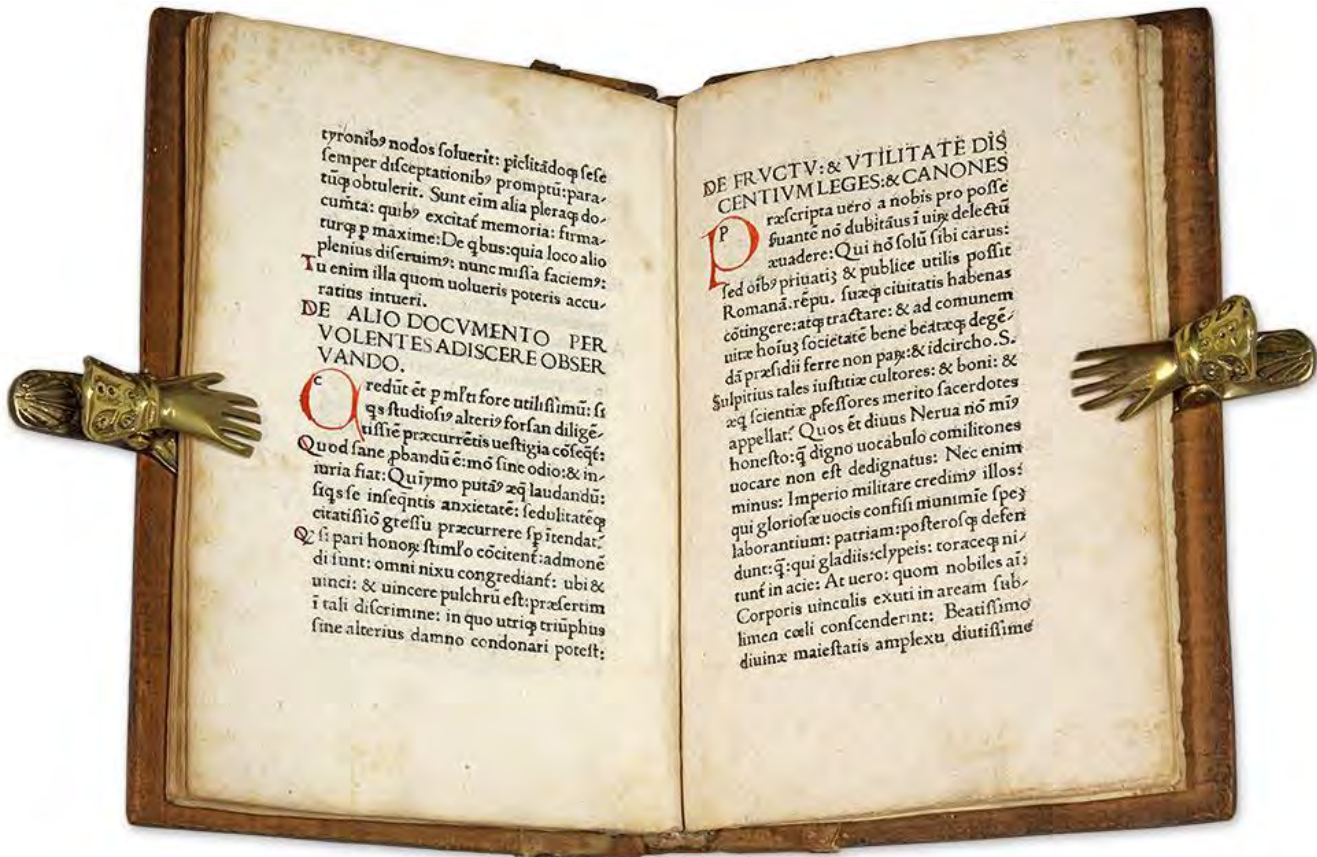 tyronibꝰ nodos ſoluerit: ꝑiclitãdoqꝫ ſeſe
ſemper diſceptationibꝰ promptũ: para-
tũqꝫ obtulerit. Sunt eim̃ alia pleraqꝫ do-
cum̃ta: quibꝰ excitat᷑ memoria: firma-
turqꝫ ꝑ maxime: De qͥbus: quia loco alio
plenius diſeruimꝰ: nunc miſſa faciemꝰ:
Tu enim illa quom uolueris poteris accu-
ratius intueri.
DE ALIO DOCVMENTO PER
VOLENTES ADISCERE OBSER
VANDO.
C redũt ẽt ꝑ ml̃ti fore utiliſſimũ: ſi
qͥs ſtudioſiꝰ alteriꝰ forſan diligẽ-
tiſſiẽ præcurrẽtis ueſtigia cõſeqͣt᷑:
Quod ſane ꝓbandũ ẽ: mõ ſine odio: & in-
iuria fiat: Quĩymo putãꝰ æq̃ laudandũ:
ſiqͥs ſe inſeqñtis anxietatẽ: ſedulitatẽqꝫ
citatiſſiõ greſſu præcurrere ſꝑ ĩtendat:
Qꝫ ſi pari honoꝝ ſtiml̃o cõcitent᷑: admonẽ
di ſunt: omni nixu congrediant᷑: ubi &
uinci: & uincere pulchrũ eſt: præſertim
ĩ tali diſcrimine: in quo utriqꝫ triũphus
ſine alterius damno condonari poteſt:
DE FRVCTV: & VTILITATE DĨS
CENTIVM LEGES: & CANONES
P ræſcripta uero a nobis pro poſſe
ſuante nõ dubitãus ĩ uiꝝ delectũ
æuadere: Qui nõ ſolũ ſibi carus:
ſed oĩbꝰ priuatiꝫ & publice utilis poſſit
Romanã. rẽpu. ſuæqꝫ ciuitatis habenas
cõtingere: atqꝫ tractare: & ad comunem
uitæ hoĩuꝫ ſocietatẽ bene beatæqꝫ degẽ-
dã præſidii ferre non paꝝ: & idcircho. S.
Sulpitius tales iuſtitiæ cultores: & boni: &
æqͥ ſcientiæ ꝓfeſſores merito ſacerdotes
appellat: Quos ẽt diuus Nerua nõ miꝰ
honeſto: q̃ digno uocabulo comilitones
uocare non eſt dedignatus: Nec enim
minus: Imperio militare credimꝰ illos:
qui glorioſæ uocis confiſi munimĩe ſpeꝫ
laborantium: patriam: poſteroſqꝫ defen
dunt: q̃: qui gladiis: clypeis: toraceqꝫ ni-
tunt᷑ in acie: At uero: quom nobiles aĩ:
Corporis uinculis exuti in aream ſub-
limen cœli conſcenderint: Beatiſſimo
diuinæ maieſtatis amplexu diutiſſime